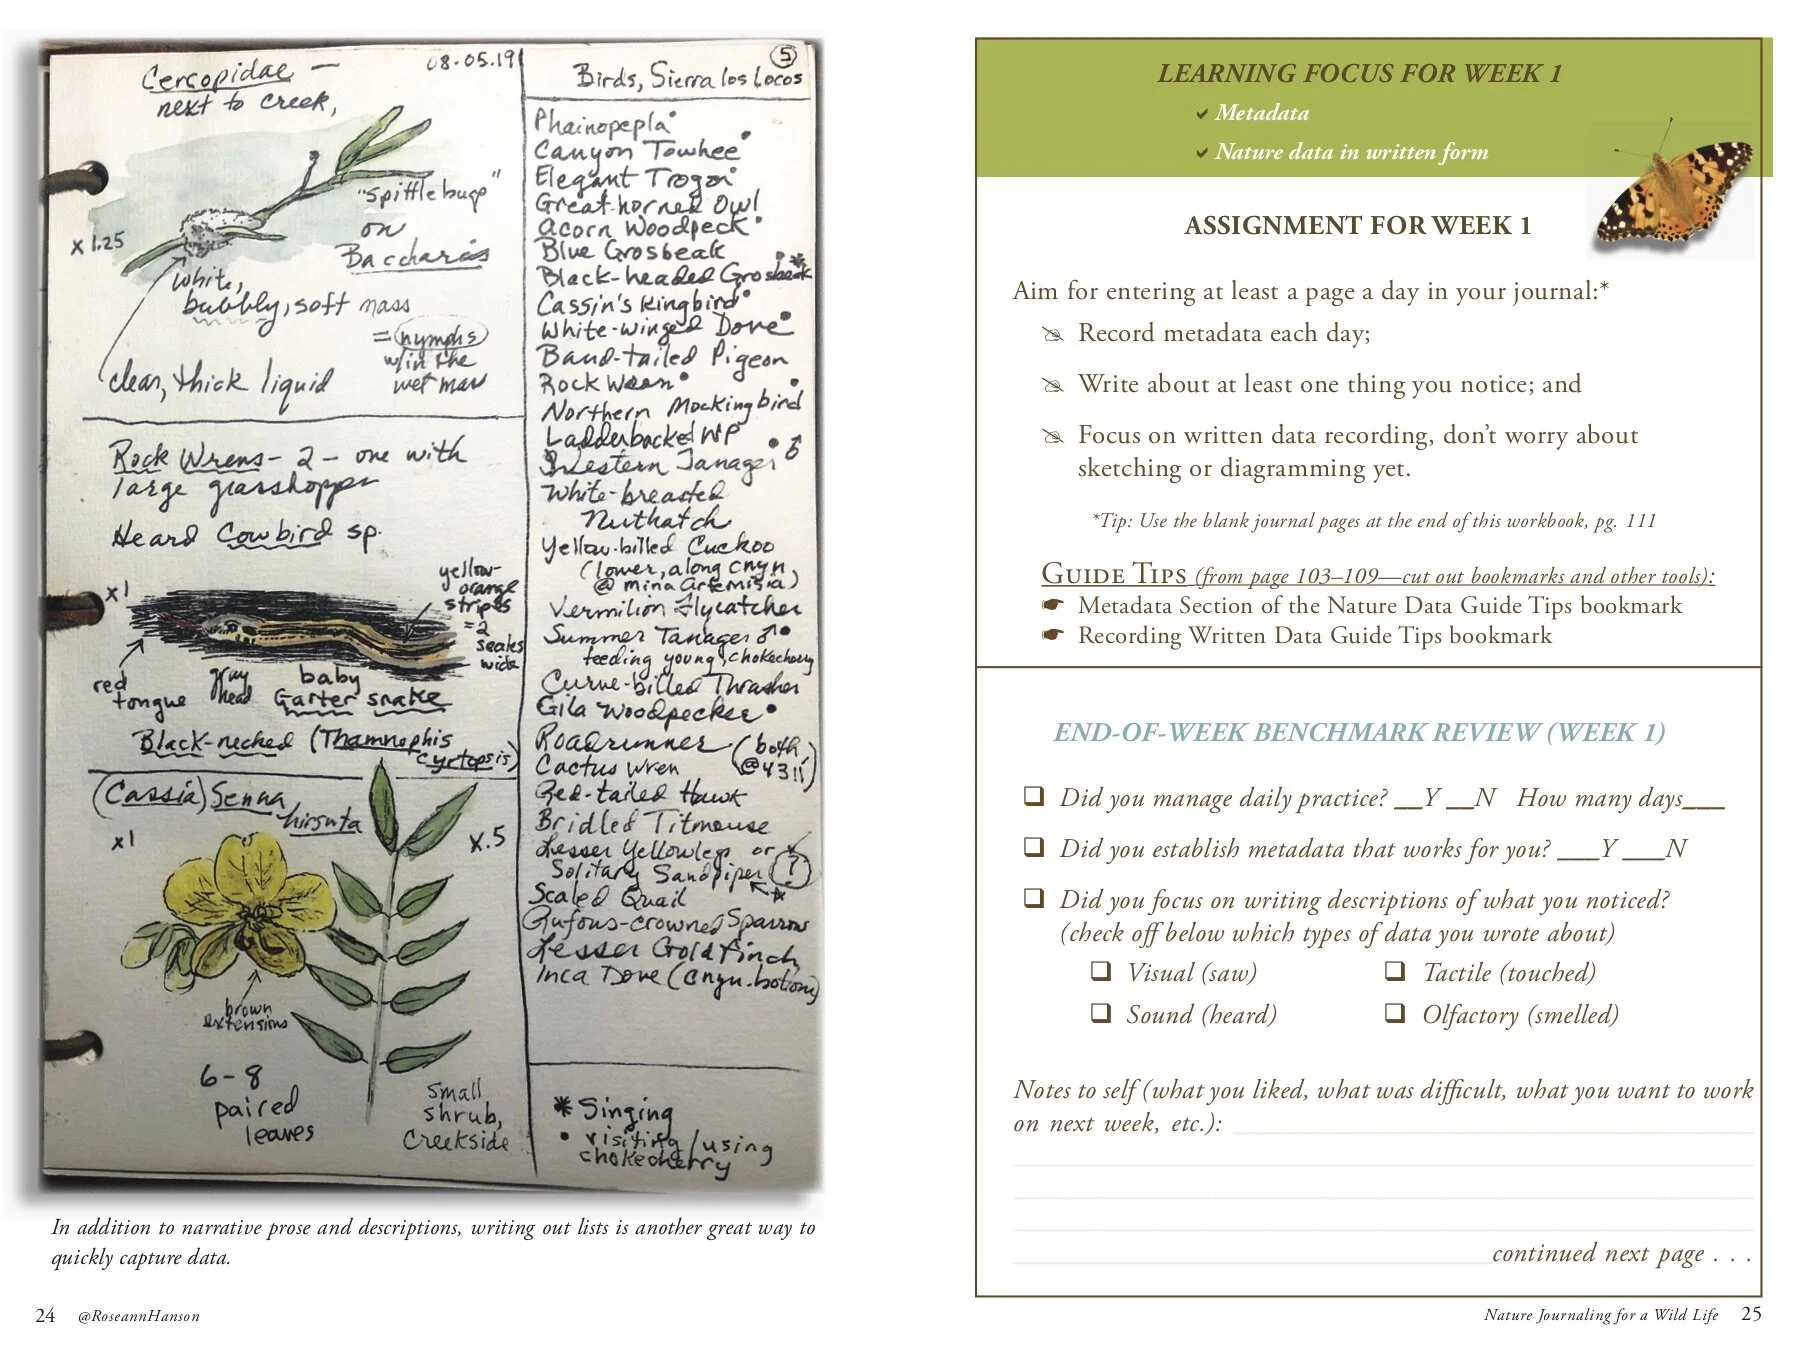 Cercopidae —
next to creek,
08.05.19
"spittlebug"
on
Baccharis
x 1.25
white,
bubbly, soft mass
= nymphs
w/in the
wet mass
clear, thick liquid
Rock Wrens - 2 - one with
large grasshopper
Heard Cowbird sp.
x1
yellow-
orange
stripes
= 2
scales
wide
red
tongue
gray
head
baby
Garter snake
Black-necked (Thamnophis
cyrtopsis)
(Cassia) Senna
hirsuta
x1
x.5
brown
extensions
6-8
paired
leaves
small
shrub,
creekside
5
Birds, Sierra los Locos
Phainopepla •
Canyon Towhee •
Elegant Trogon •
Great-horned Owl
Acorn Woodpeck •
Blue Grosbeak
Black-headed Grosbeak • *
Cassin's Kingbird •
White-winged Dove •
Band-tailed Pigeon
Rock Wren •
Northern Mockingbird •
Ladderbacked WP
Western Tanager • ♂
White-breasted
Nuthatch
Yellow-billed Cuckoo
(lower, along cnyn
@ mina Artemisia)
Vermilion Flycatcher
Summer Tanager ♂ •
feeding young, chokecherry
Curve-billed Thrasher
Gila Woodpecker •
Roadrunner (both
Cactus Wren @4311)
Red-tailed Hawk
Bridled Titmouse
Lesser Yellowlegs or
Solitary Sandpiper ?
Scaled Quail
Rufous-crowned Sparrow
Lesser Goldfinch
Inca Dove (cnyn. bottom)
* Singing
• visiting/using
chokecherry
In addition to narrative prose and descriptions, writing out lists is another great way to
quickly capture data.
24 @RoseannHanson
LEARNING FOCUS FOR WEEK 1
✓ Metadata
✓ Nature data in written form
ASSIGNMENT FOR WEEK 1
Aim for entering at least a page a day in your journal:*
Record metadata each day;
Write about at least one thing you notice; and
Focus on written data recording, don't worry about
sketching or diagramming yet.
*Tip: Use the blank journal pages at the end of this workbook, pg. 111
GUIDE TIPS (from page 103–109—cut out bookmarks and other tools):
Metadata Section of the Nature Data Guide Tips bookmark
Recording Written Data Guide Tips bookmark
END-OF-WEEK BENCHMARK REVIEW (WEEK 1)
❑ Did you manage daily practice? __Y __N How many days___
❑ Did you establish metadata that works for you? ___Y ___N
❑ Did you focus on writing descriptions of what you noticed?
(check off below which types of data you wrote about)
❑ Visual (saw) ❑ Tactile (touched)
❑ Sound (heard) ❑ Olfactory (smelled)
Notes to self (what you liked, what was difficult, what you want to work
on next week, etc.):
continued next page . . .
Nature Journaling for a Wild Life 25